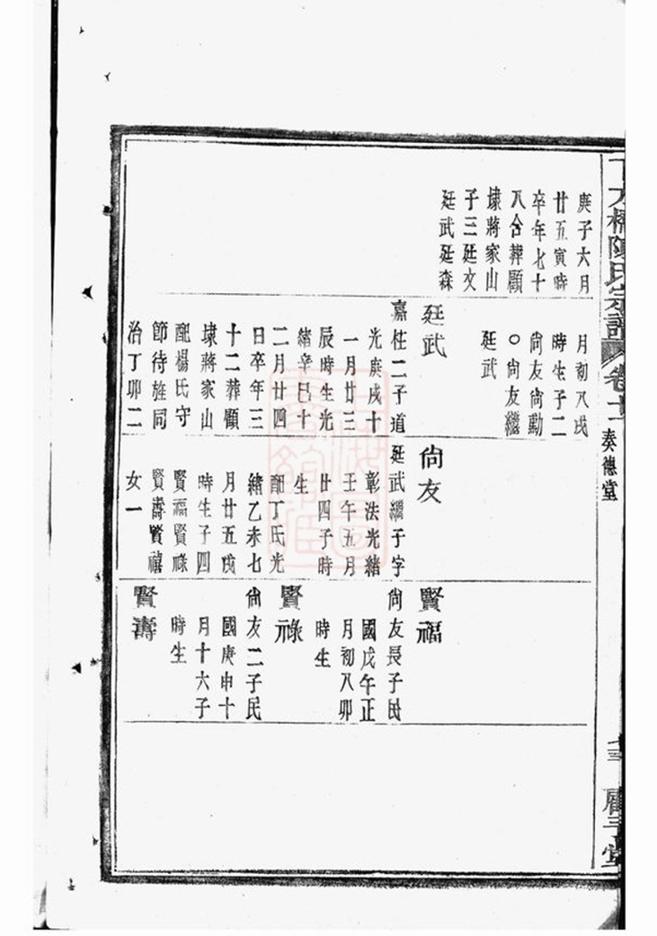 陳氏宗譜
卷十二
奏德堂
庚子六月
廿五寅時
卒年七十
八合葬顧
埭蔣家山
子三廷文
廷武廷森
月初八戌
時生子二
尙友尙勤
○尙友繼
廷武
廷武
嘉柱二子道
光庚戌十
一月廿三
辰時生光
緒辛巳十
二月廿四
日卒年三
十二葬顧
埭蔣家山
配楊氏守
節待旌同
治丁卯二
尙友
廷武繼子字
彰法光緒
壬午五月
廿四子時
生
配丁氏光
緒乙未七
月廿五戌
時生子四
賢福賢祿
賢壽賢禧
女一
賢福
尙友長子民
國戊午正
月初八卯
時生
賢祿
尙友二子民
國庚申十
月十六子
時生
賢壽